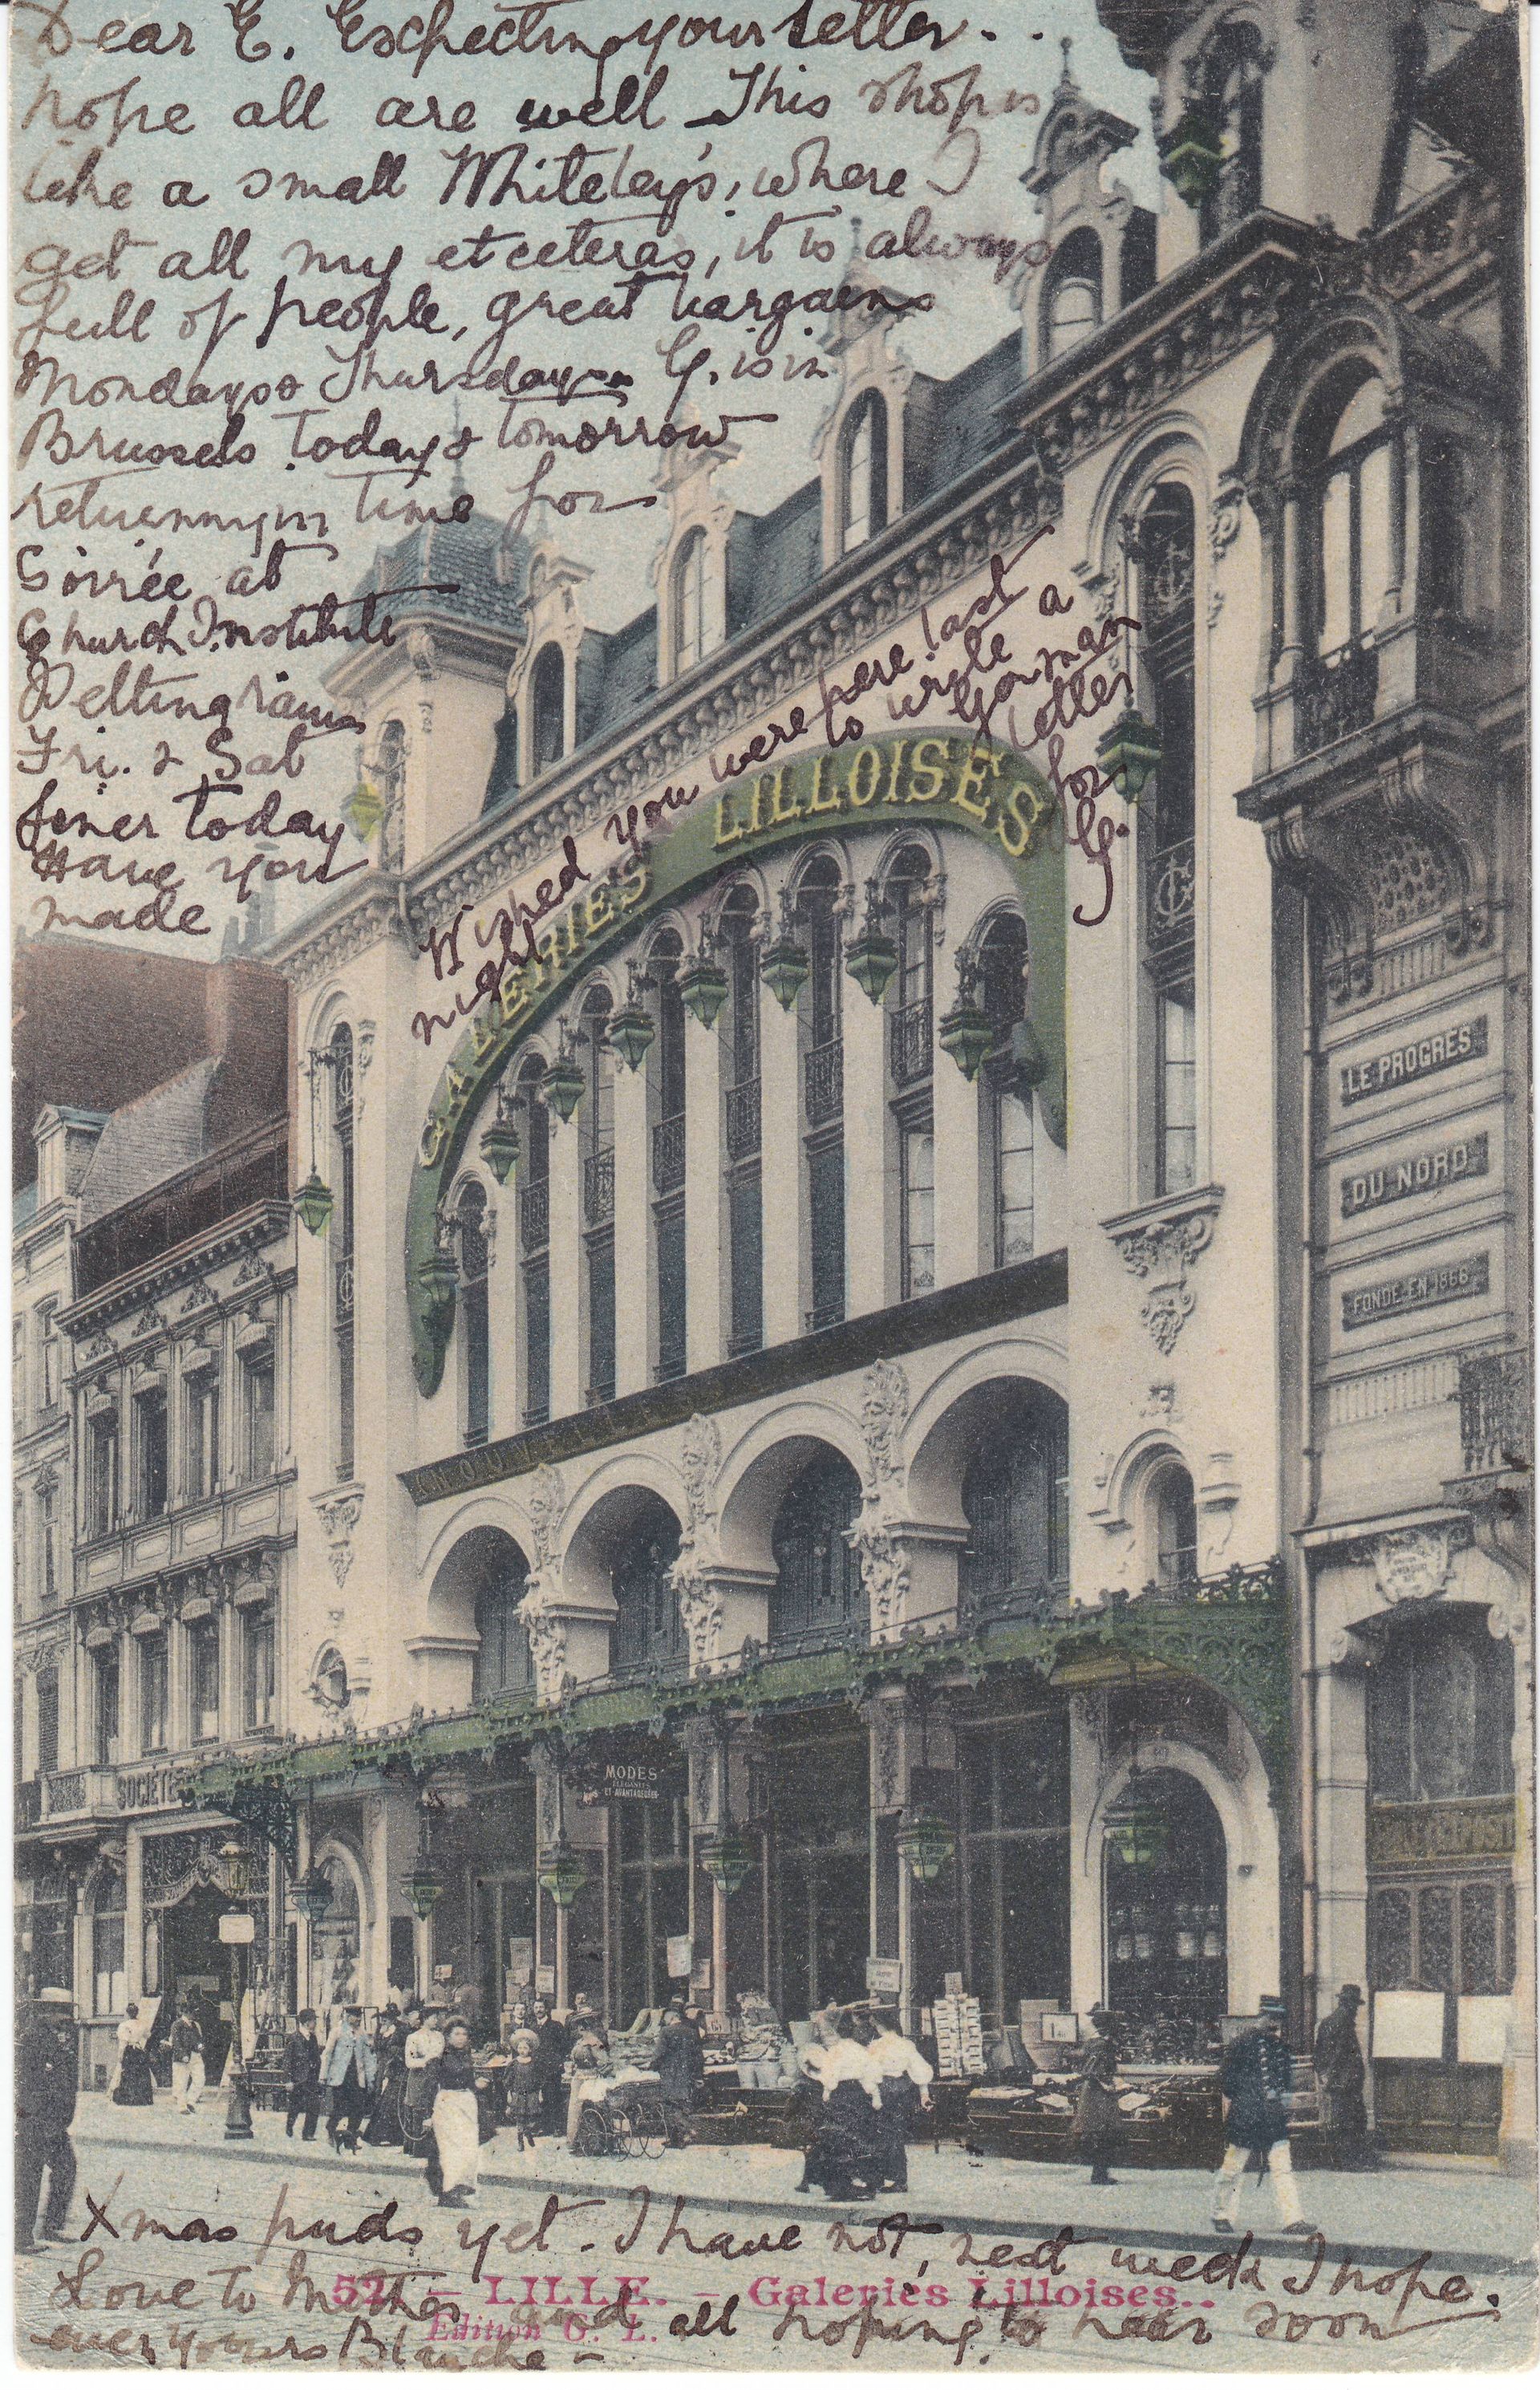 Dear E. Expecting your letter. . .
hope all are well This shop is
like a small Whiteley's, where I
get all my etceteras, it is always
full of people, great bargains
Mondays & Thursdays G. is in
Brussels today & tomorrow
returning in time for
Soirée at
Church Institute
Pelting rain
Fri. & Sat
finer today
Have you
made
Wished you were here last
night to write a
Gorman
letter
for
G.
GALERIES LILLOISES
NOUVELLES
LE PROGRÈS
DU NORD
FONDÉ EN 1866
SOCIÉTÉ
MODES
ÉLÉGANTES
ET AVANTAGEUSES
Xmas puds yet. I have not, next week I hope.
52. – LILLE. – Galeries Lilloises..
Love to Mother and all hoping to hear soon
Edition G. L.
ever yours Blanche –